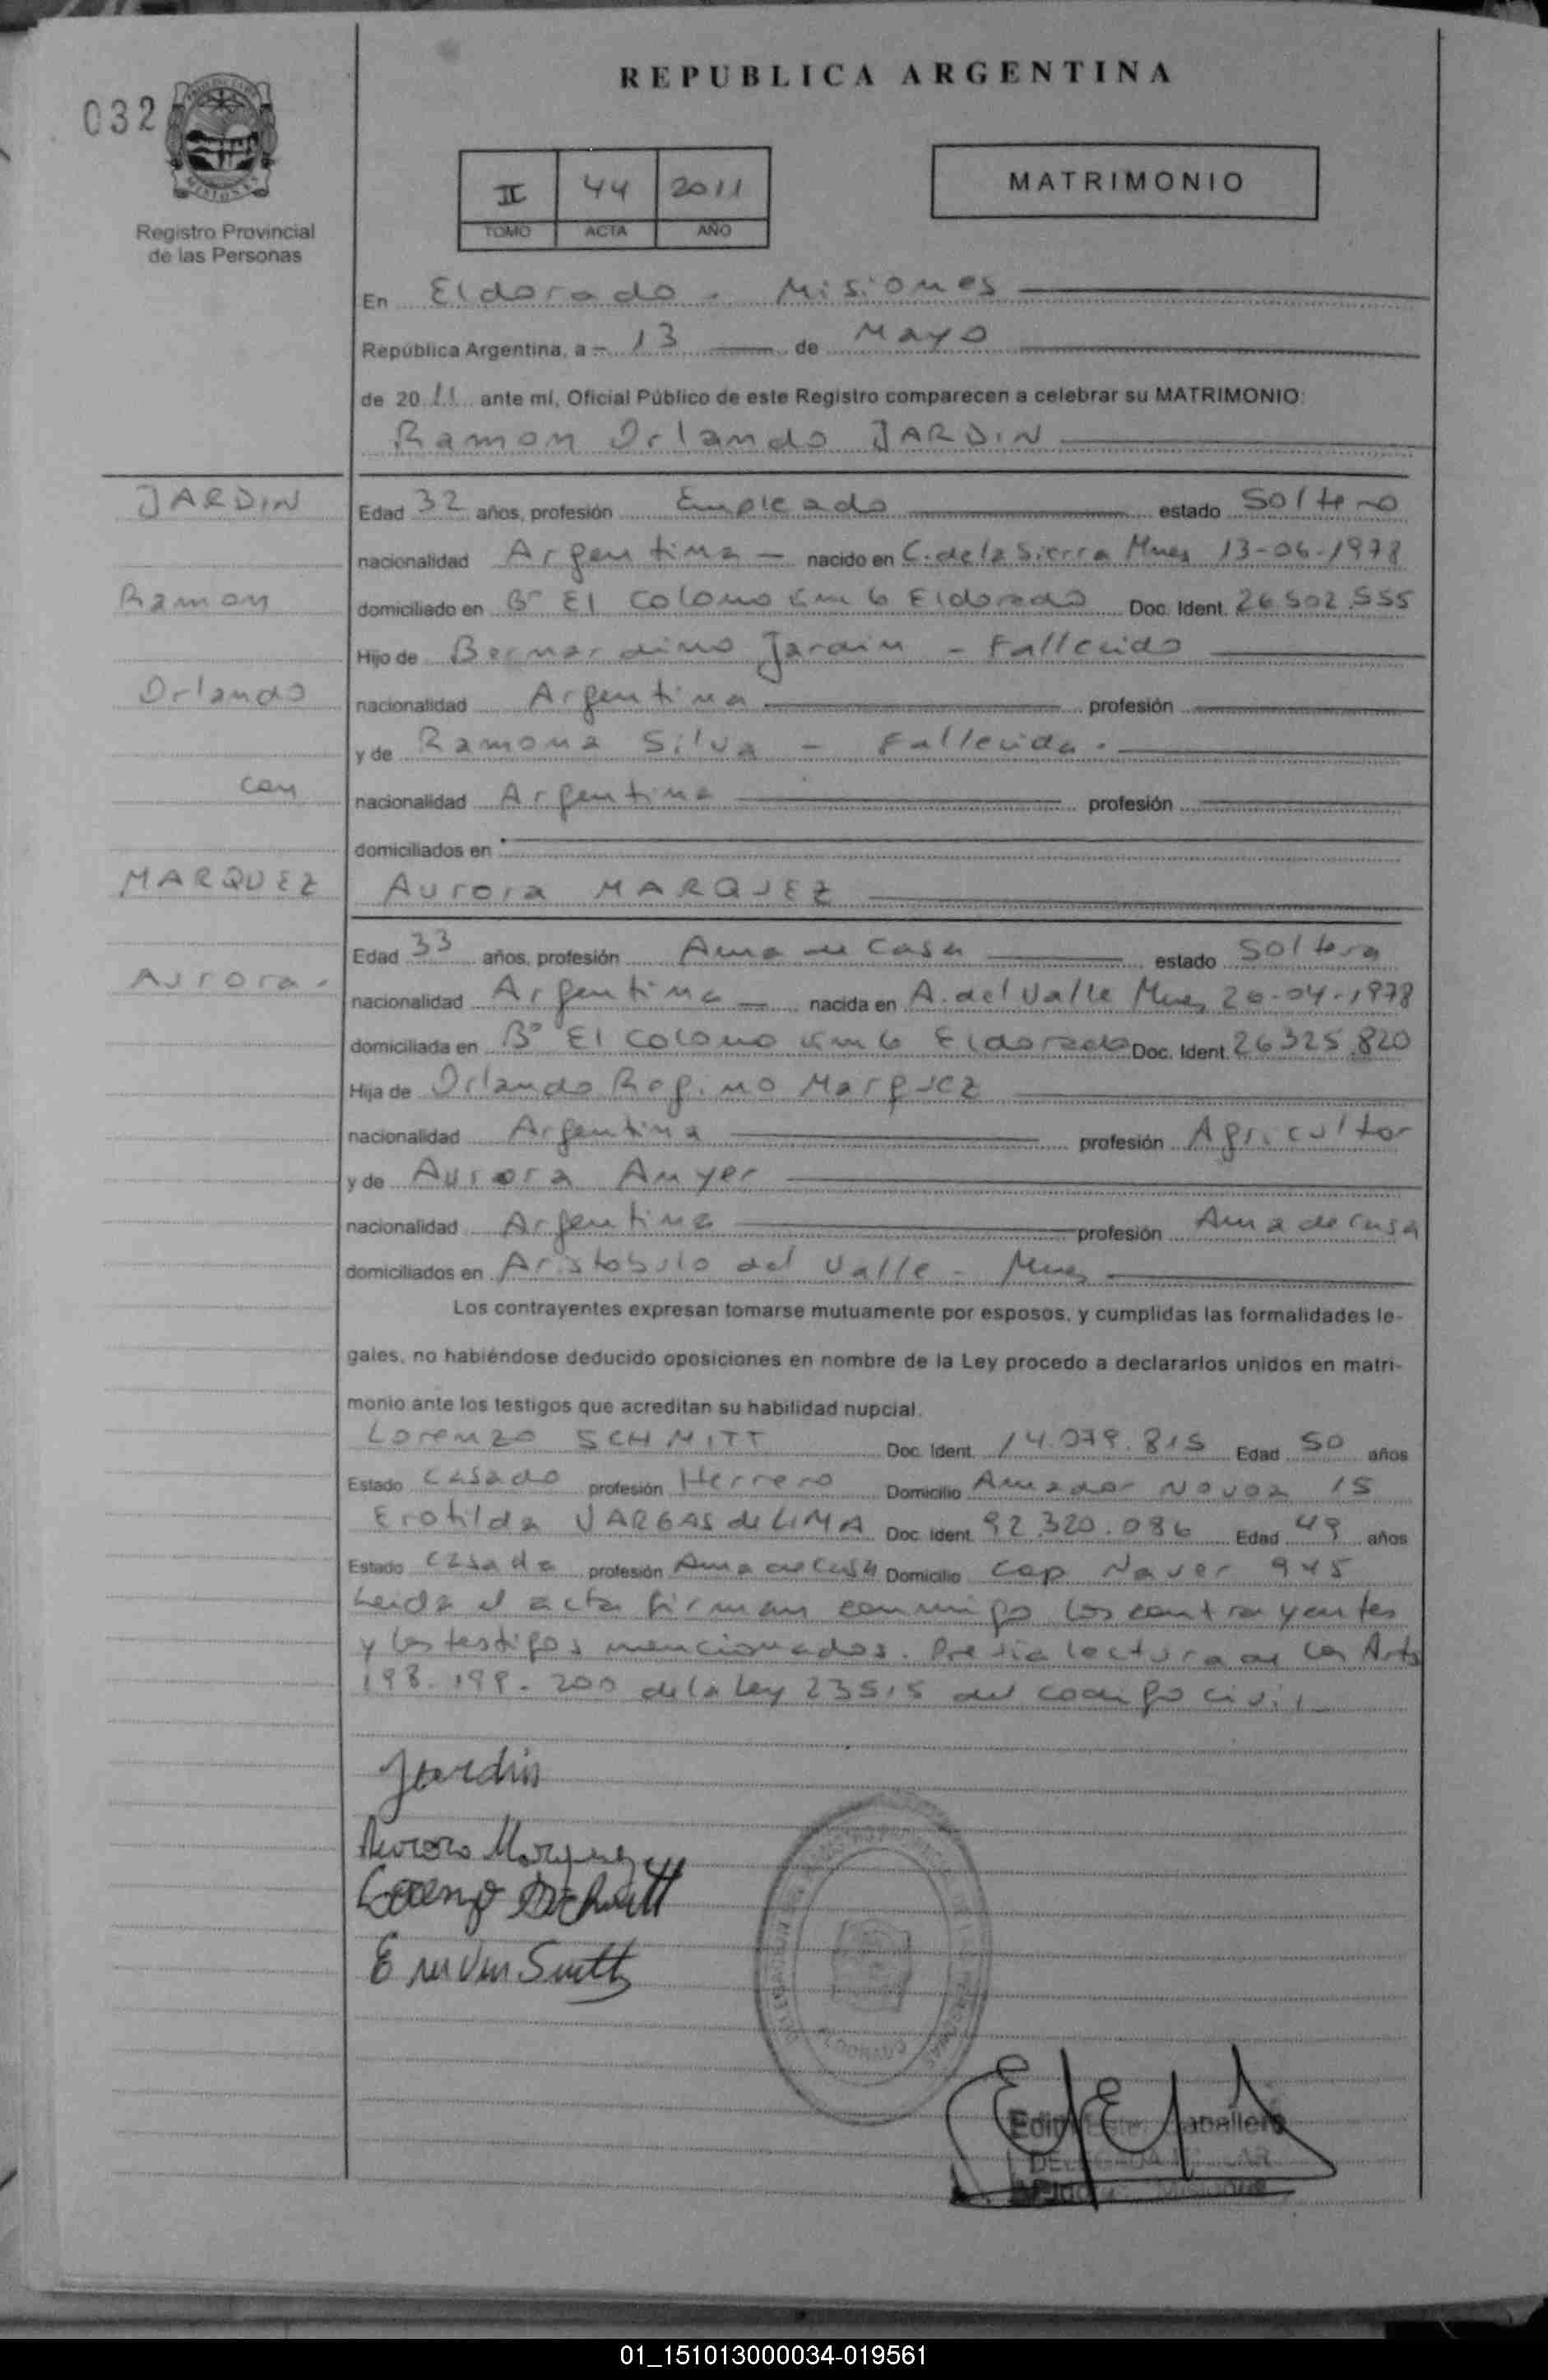 REPUBLICA ARGENTINA
032
MISIONES
Registro Provincial
de las Personas
II 44 2011
TOMO ACTA AÑO
MATRIMONIO
En Eldorado - Misiones
República Argentina, a 13 de Mayo
de 2011 ante mí, Oficial Público de este Registro comparecen a celebrar su MATRIMONIO:
Ramon Orlando JARDIN
JARDIN
Ramon
Orlando
con
MARQUEZ
Aurora.
Edad 32 años, profesión Empleado estado Soltero
nacionalidad Argentina - nacido en C. de la Sierra Mnes 13-06-1978
domiciliado en B° El Colono Km 6 Eldorado Doc. Ident. 26.502.555
Hijo de Bernardino Jardin - Fallecido
nacionalidad Argentina profesión
y de Ramona Silva - Fallecida.
nacionalidad Argentina profesión
domiciliados en
Aurora MARQUEZ
Edad 33 años, profesión Ama de Casa estado Soltera
nacionalidad Argentina nacida en A. del Valle Mnes 20-04-1978
domiciliada en B° El Colono Km 6 Eldorado Doc. Ident. 26325.820
Hija de Orlando Marquez
nacionalidad Argentina profesión Agricultor
y de Aurora Anyer
nacionalidad Argentina profesión Ama de Casa
domiciliados en Aristobulo del Valle - Mnes
Los contrayentes expresan tomarse mutuamente por esposos, y cumplidas las formalidades le-
gales, no habiéndose deducido oposiciones en nombre de la Ley procedo a declararlos unidos en matri-
monio ante los testigos que acreditan su habilidad nupcial.
Lorenzo SCHMITT Doc. Ident. 14.079.815 Edad 50 años
Estado Casado profesión Herrero Domicilio Amador Novoa 15
Erotilda VARGAS de LIMA Doc. Ident. 92.320.086 Edad 49 años
Estado Casada profesión Ama de Casa Domicilio Cap 945
Leida el acta firman conmigo los contrayentes
y los testigos mencionados. Previa lectura de los Arts
198. 199. 200 de la Ley 23515 del codigo civil
Jardin
Aurora Marquez
Lorenzo Schmitt
ELDORADO
Caballero
Misiones
01_151013000034-019561